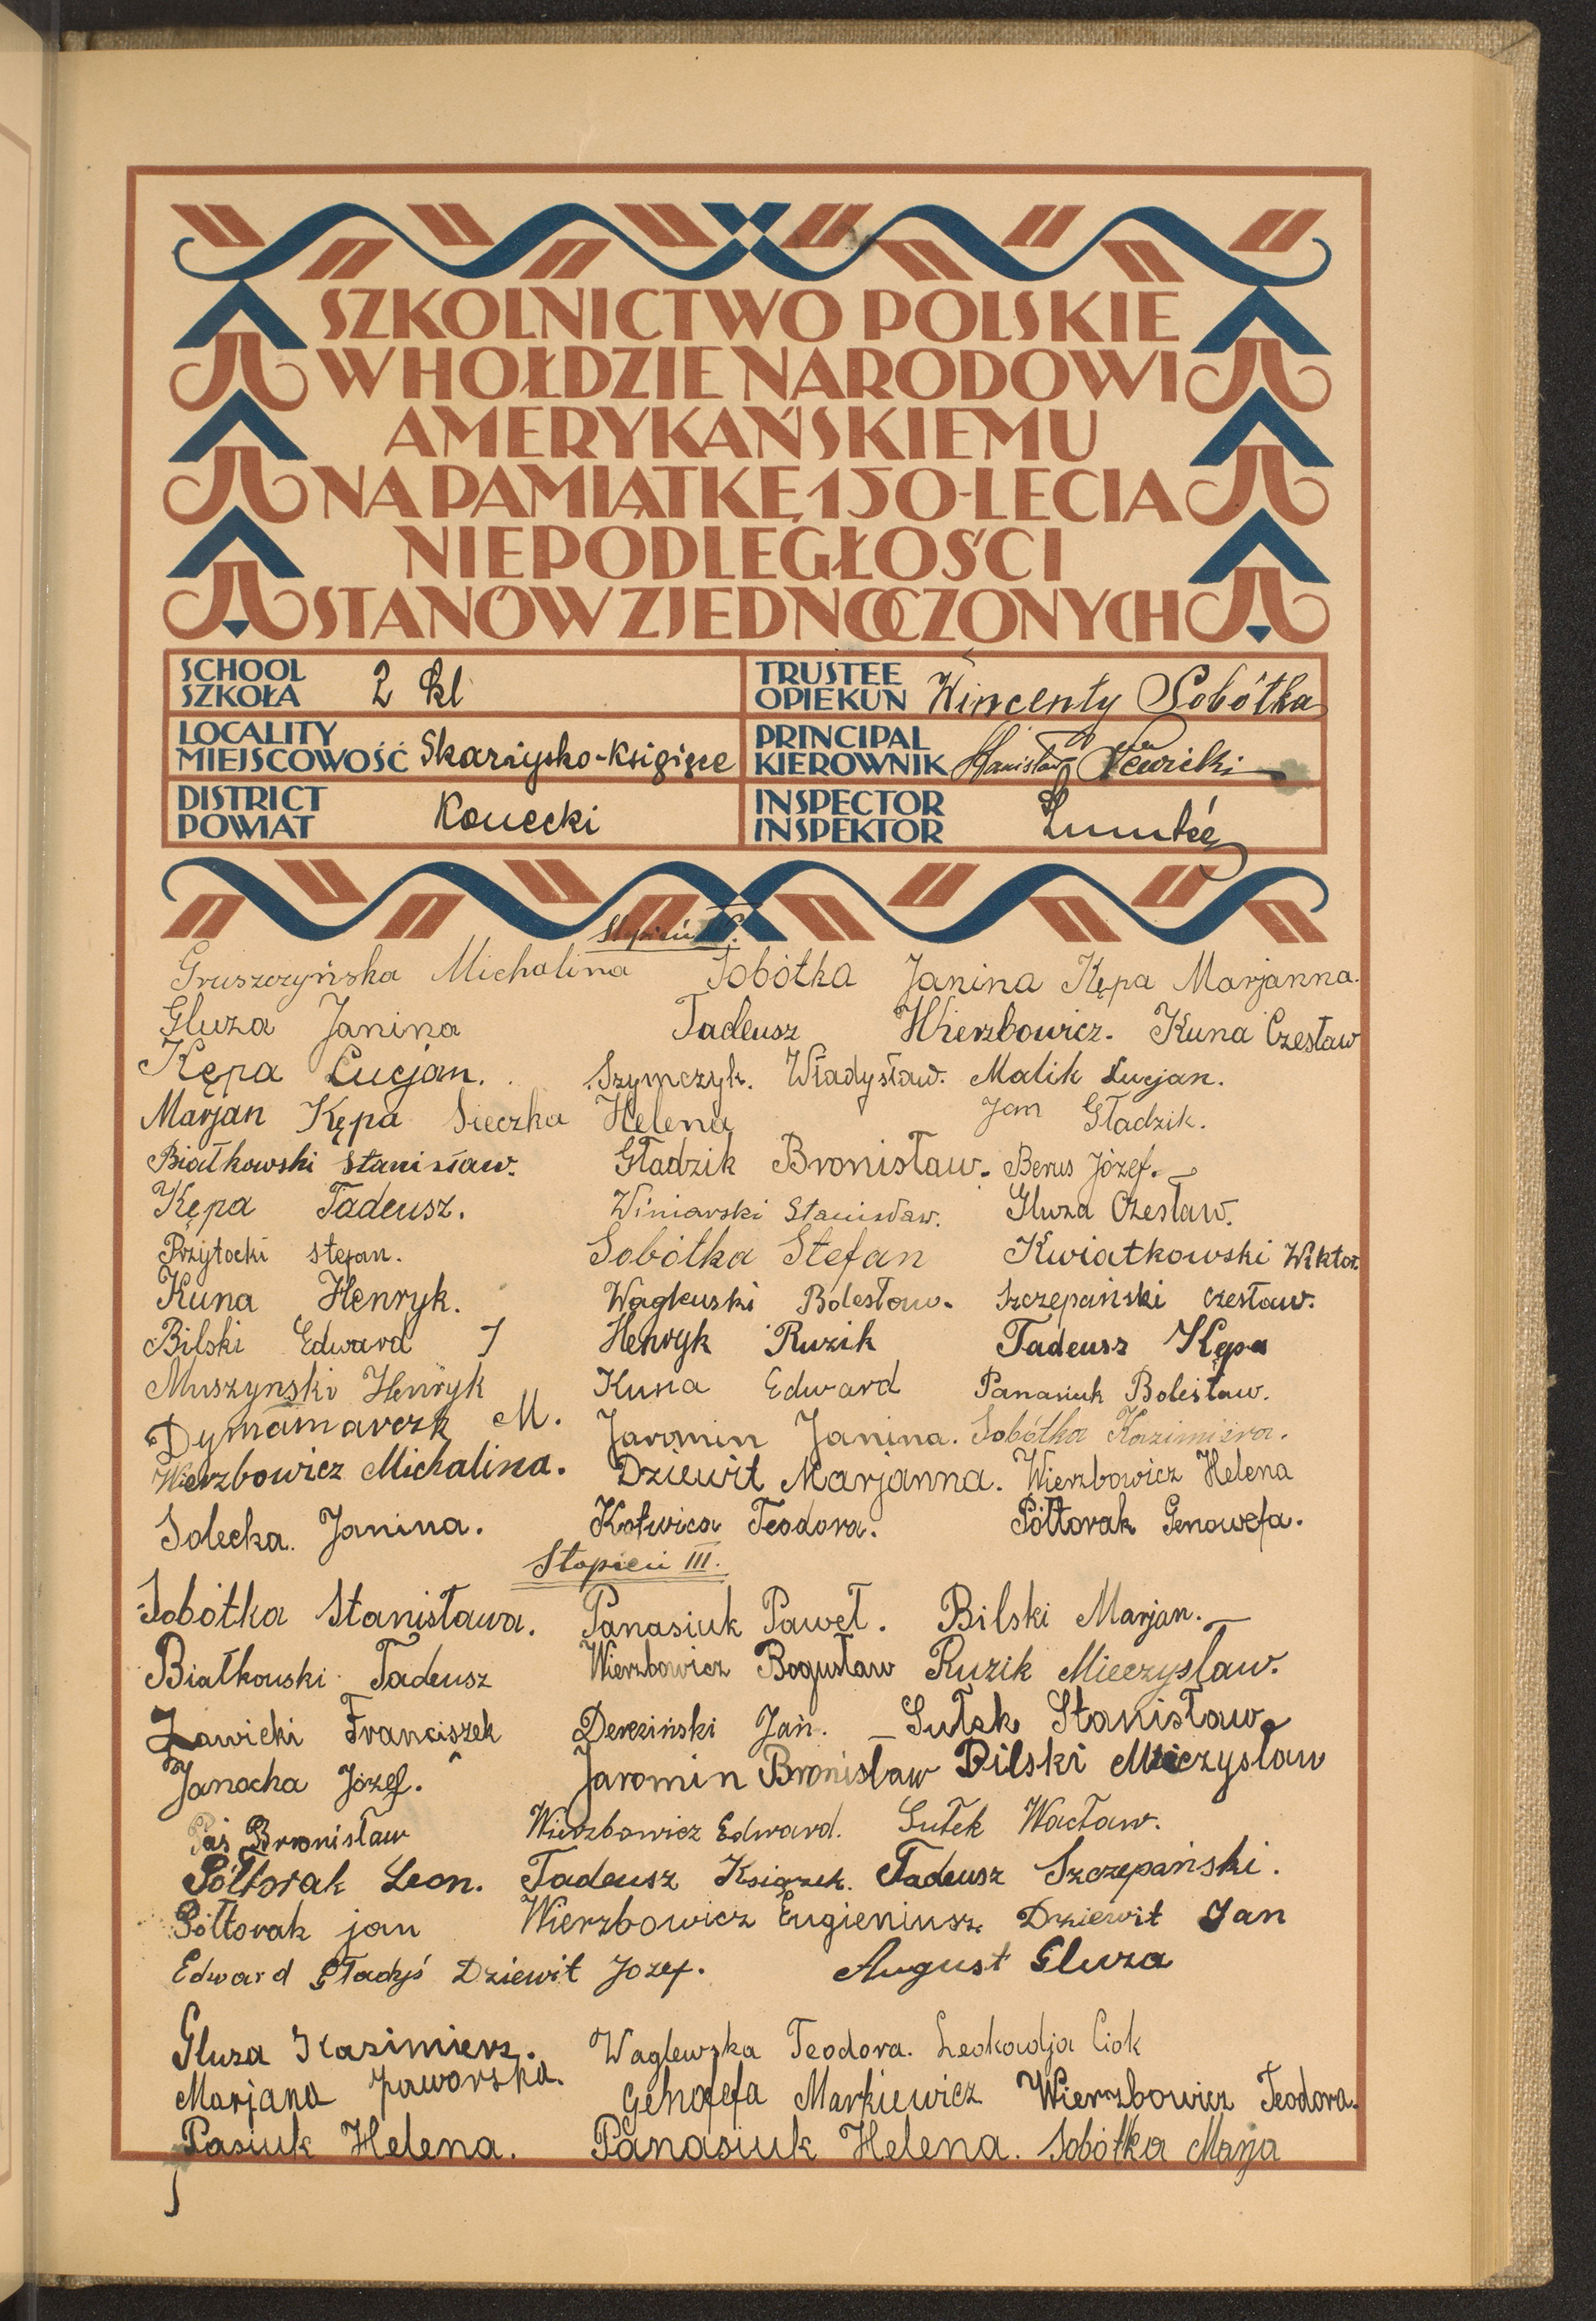 SZKOLNICTWO POLSKIE
W HOŁDZIE NARODOWI
AMERYKAŃSKIEMU
NA PAMIĄTKĘ 150-LECIA
NIEPODLEGŁOŚCI
STANÓW ZJEDNOCZONYCH
SCHOOL SZKOŁA 2 kl TRUSTEE OPIEKUN Wincenty Sobótka
LOCALITY MIEJSCOWOŚĆ Skarżysko-Książęce PRINCIPAL KIEROWNIK Stanisław
DISTRICT POWIAT Konecki INSPECTOR INSPEKTOR
Stopień
Gruszczyńska Michalina Sobótka Janina Kępa Marjanna.
Gluza Janina Tadeusz Wierzbowicz. Kuna Czesław
Kępa Lucjan. Szymczyk. Władysław. Malik Lucjan.
Marjan Kępa Sieczka Helena Jan Gładzik.
Białkowski Stanisław. Gładzik Bronisław. Berus Józef.
Kępa Tadeusz. Winiarski Stanisław. Gluza Czesław.
Przytocki stefan. Sobótka Stefan Kwiatkowski Wiktor.
Kuna Henryk. Wagleuski Bolesław. Szczepański czesław.
Bilski Edward J Henryk Ruzik Tadeusz Kępa
Muszynski Henryk Kuna Edward Panasiuk Bolesław.
M. Jaromin Janina. Sobótka Kazimiera.
Wierzbowicz Michalina. Dziewit Marjanna. Wierzbowicz Helena
Solecka. Janina. Kotwica Teodora. Półtorak Genowefa.
Stopień III.
Sobótka Stanisława. Panasiuk Paweł. Bilski Marjan.
Białkouski Tadeusz Wierzbowicz Bogusław Ruzik Mieczysław.
Zawicki Franciszek Dereziński Jan. Sułek Stanisław
Janocha Józef. Jaromin Bronisław Bilski Mieczysław
Paś Bronisław Wierzbowicz Edward. Sułek Wacław.
Półtorak Leon. Tadeusz Książek. Tadeusz Szczepański.
Półtorak jan Wierzbowicz Eugieniusz Dziewit Jan
Edward Gładyś Dziewit Jozef. August Gluza
Gluza Kazimierz. Waglewska Teodora. Leokadja Ciok
Marjana Jaworska. Genofefa Markiewicz Wierzbowicz Teodora.
Pasiuk Helena. Panasiuk Helena. Sobótka Marja